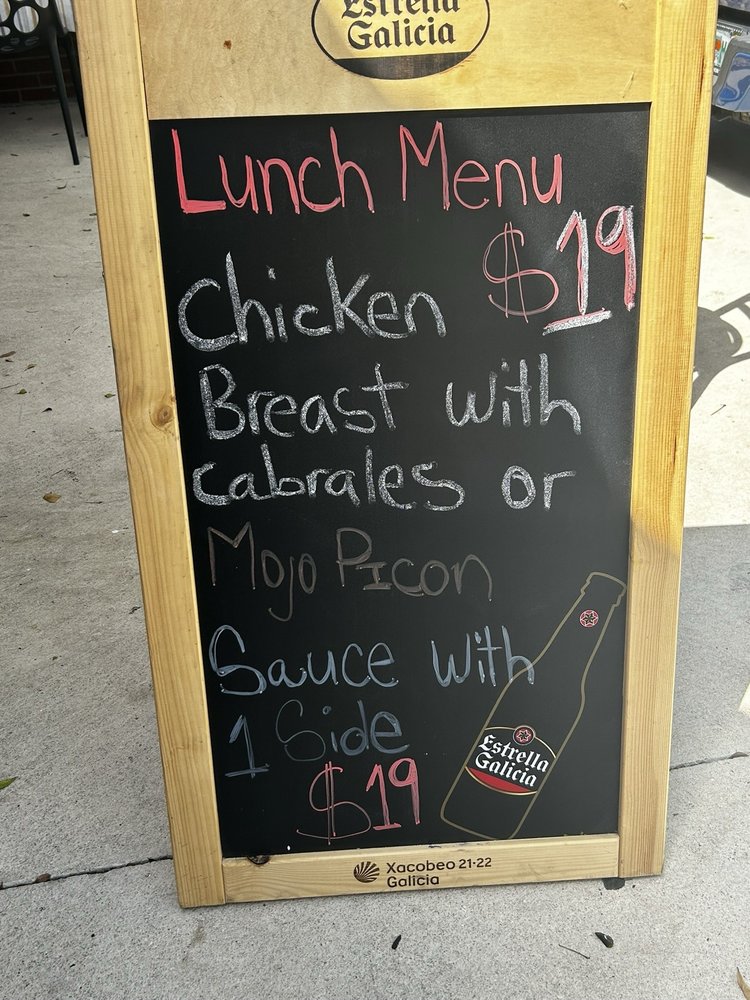 Estrella
Galicia
Lunch Menu
$19
Chicken
Breast with
cabrales or
Mojo Picon
Sauce with
1 Side
$19
Estrella
Galicia
Xacobeo 21·22
Galicia